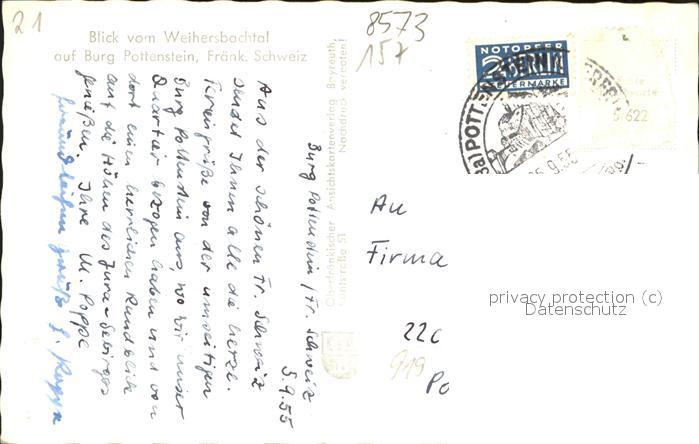 21
Blick vom Weihersbachtal
auf Burg Pottenstein, Fränk. Schweiz
8573
157
NOTOPFER
2
STEUERMARKE
POTTENSTEIN
5.9.55
5622
Burg Pottenstein / Fr. Schweiz
5.9.55
Aus der schönen Fr. Schweiz
sendet Ihnen alle die herzl.
Feriengrüße von der
Burg Pottenstein aus, wo wir unser
Quartier bezogen haben und von
dort einen herrlichen Rundblick
auf die Höhen des Jura-Gebirges
genießen. Ihre M. Poppe
freundlichen Grüße
Oberfränkischer Ansichtskartenverlag Bayreuth,
Kantstraße 51 Nachdruck verboten!
An
Firma
privacy protection (c)
Datenschutz
22c
919
Po